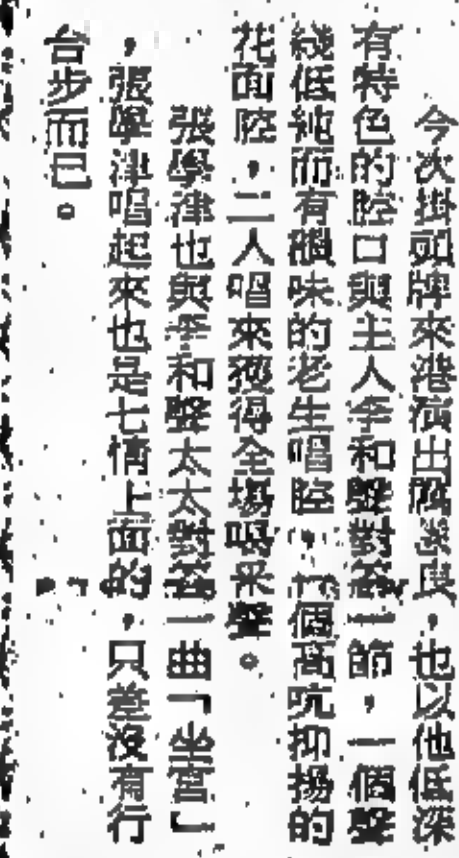 今次掛頭牌來港演出馮志良,也以他低深
有特色的腔口與主人李和聲對答一節,一個聲
綫低純而有韻味的老生唱腔,一個高吭抑揚的
花面腔,二人唱來獲得全場喝采聲。
張學津也與李和聲太太對答一曲「坐宮」
,張學津唱起來也是七情上面的,只差沒有行
台步而已。